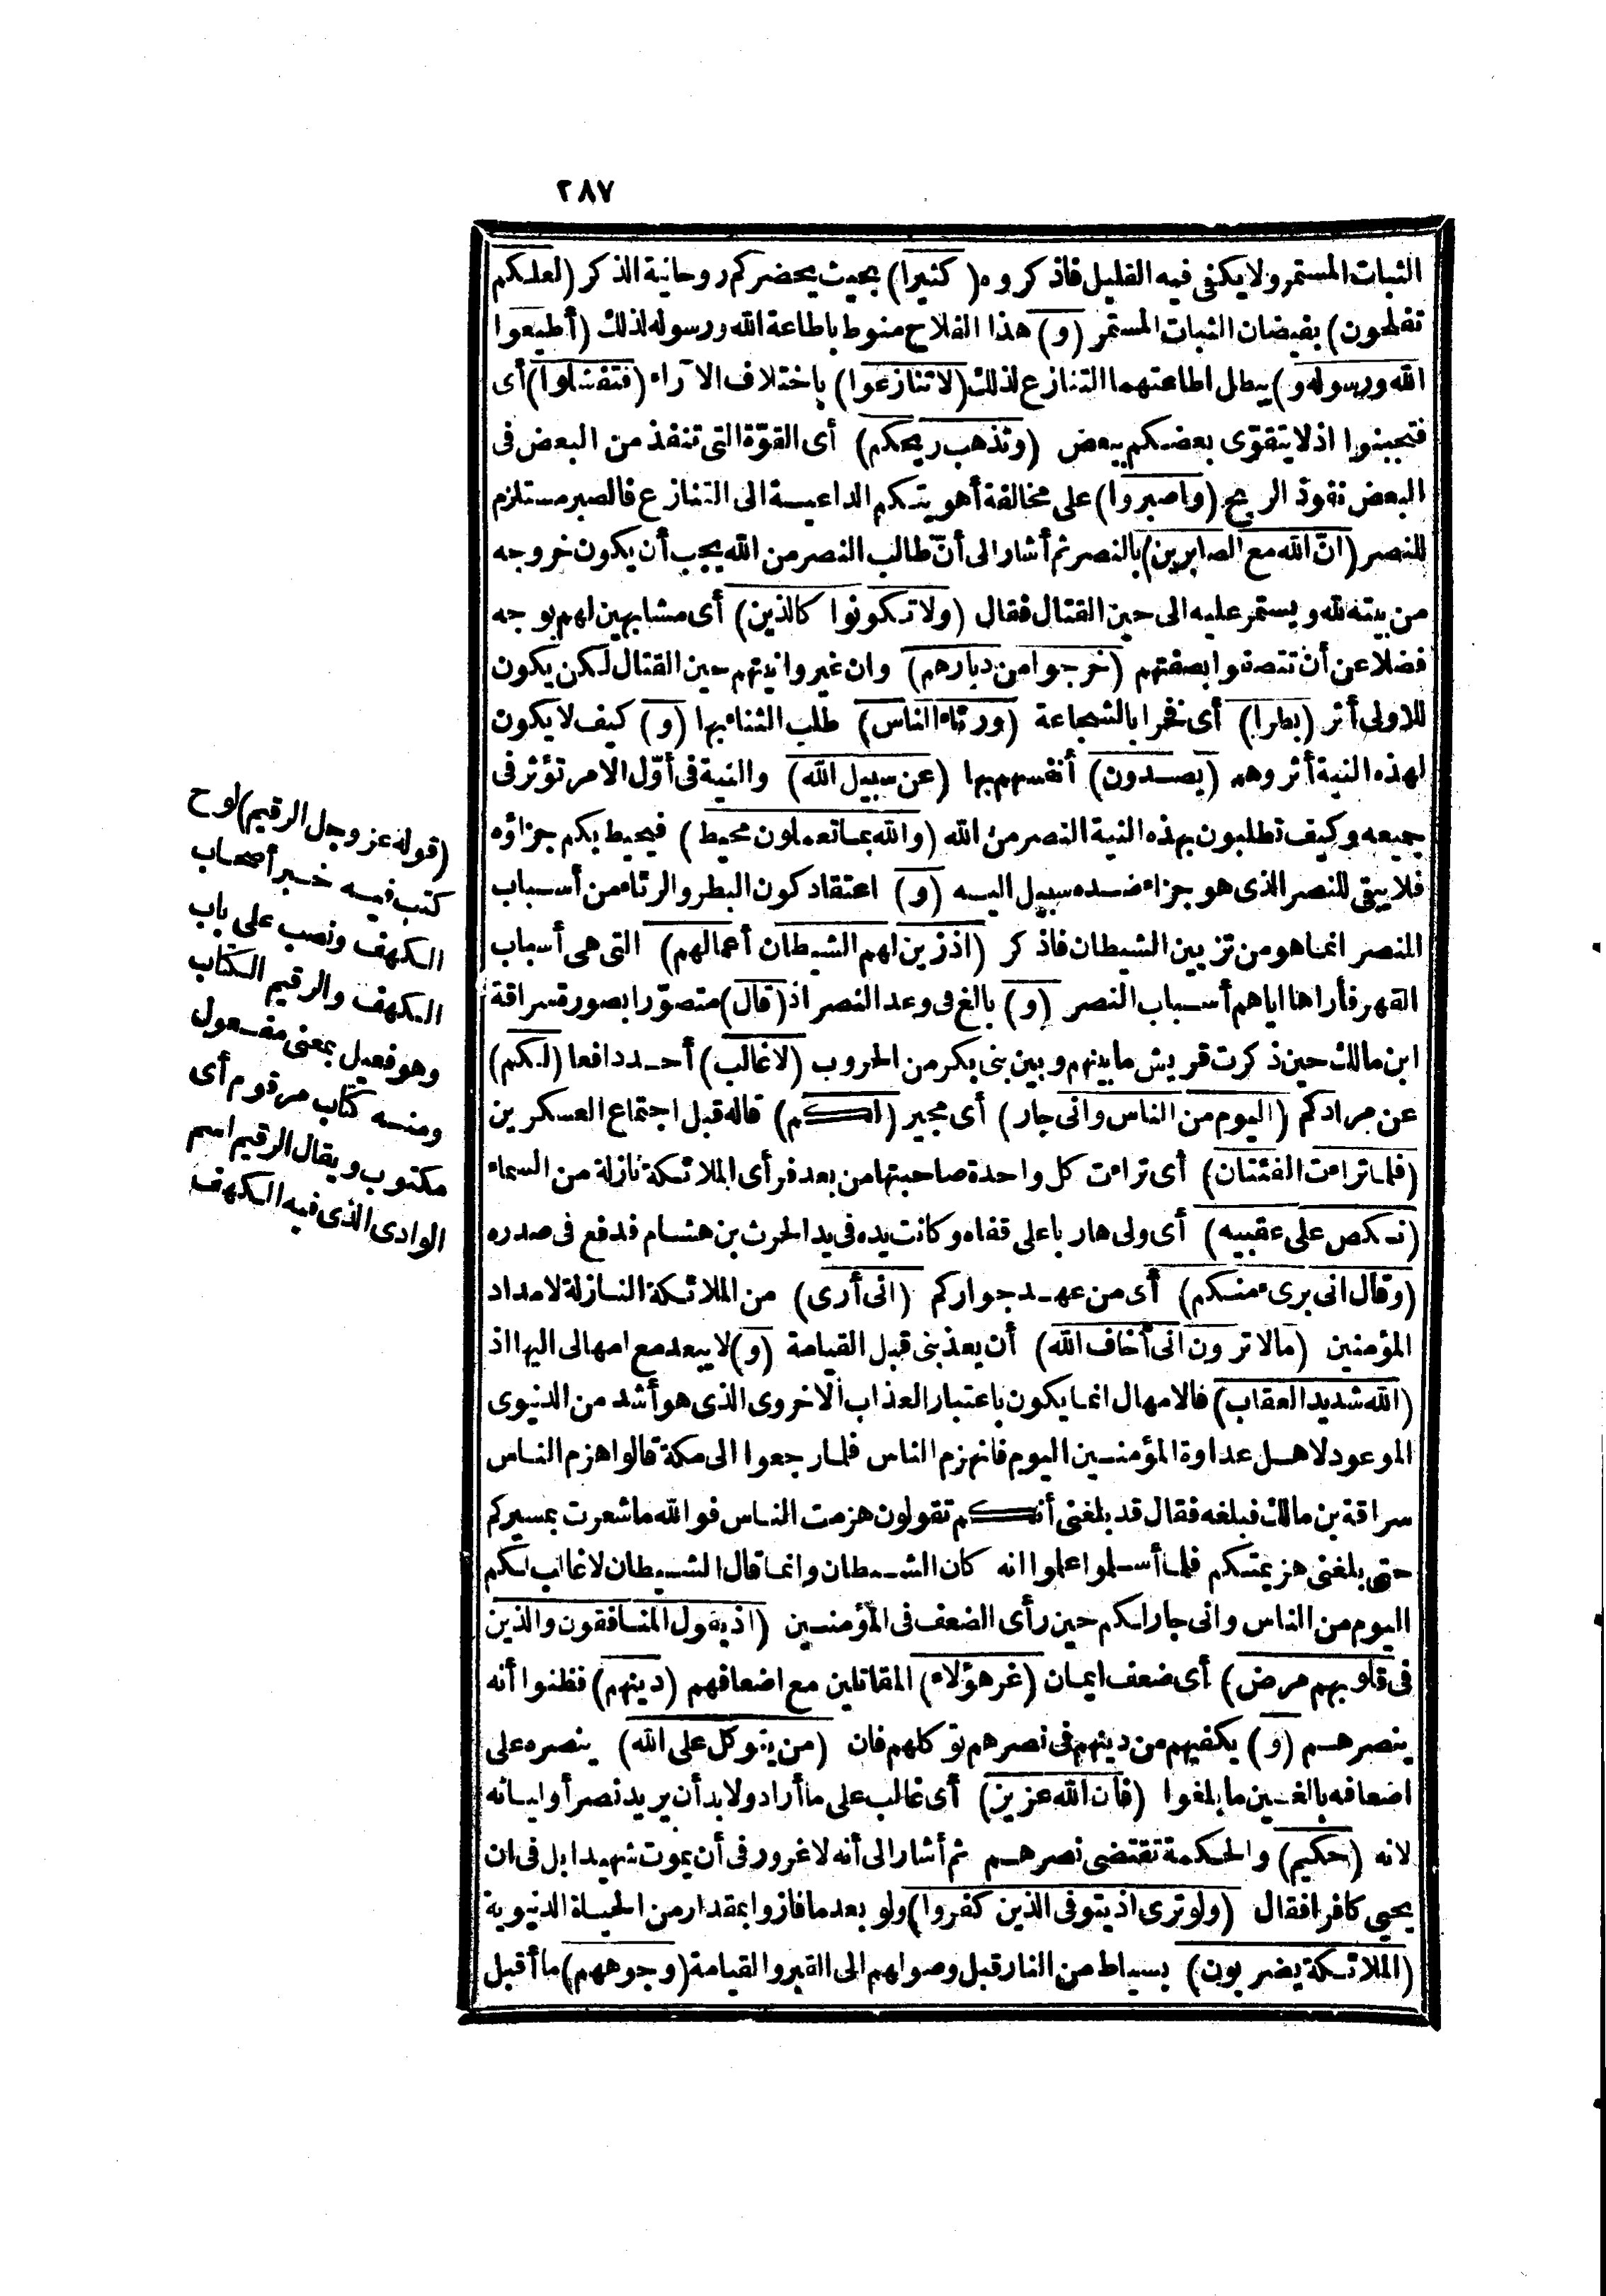 ٢٨٧
الثبات المستمر ولا يكفى فيه القليل فاذكروه (كثيرا) بحيث يحضركم روحانية الذكر (لعلكم
تفلحون) بفيضان الثبات المستمر (و) هذا الفلاح منوط باطاعة الله ورسوله لذلك (أطيعوا
الله ورسوله و) يبطل اطاعتهما التنازع لذلك (لا تنازعوا) باختلاف الآراء (فتفشلوا) أى
فتجبنوا اذ لا يتقوّى بعضكم ببعض (وتذهب ريحكم) أى القوّة التى تنفذ من البعض فى
البعض نفوذ الريح (واصبروا) على مخالفة أهويتكم الداعية الى التنازع فالصبر مستلزم
للنصر (انّ الله مع الصابرين) بالنصر ثم أشار الى أنّ طالب النصر من الله يجب أن يكون خروجه
من بيته لله ويستمر عليه الى حين القتال فقال (ولا تكونوا كالذين) أى مشابهين لهم بوجه
فضلا عن أن تتصفوا بصفتهم (خرجوا من ديارهم) وان غيروا نيتهم حين القتال لكن يكون
للاولى أثر (بطرا) أى فخرا بالشجاعة (ورئاء الناس) طلب الثناء بها (و) كيف لا يكون
لهذه النية أثر وهم (يصدون) أنفسهم بها (عن سبيل الله) والنية فى أوّل الامر تؤثر فى
جميعه وكيف تطلبون بهذه النية النصر من الله (والله بما تعملون محيط) فيحيط بكم جزاؤه
فلا يبقى للنصر الذى هو جزاء ضده سبيل اليه (و) اعتقاد كون البطر والرئاء من أسباب
النصر انما هو من تزيين الشيطان فاذكر (اذ زين لهم الشيطان أعمالهم) التى هى أسباب
القهر فأراها اياهم أسباب النصر (و) بالغ فى وعد النصر اذ (قال) متصوّرا بصورة سراقة
ابن مالك حين ذكرت قريش ما بينهم وبين بنى بكر من الحروب (لا غالب) أحد دافعا (لكم)
عن مرادكم (اليوم من الناس وانى جار) أى مجير (لكم) قاله قبل اجتماع العسكرين
(فلما تراءت الفئتان) أى تراءت كل واحدة صاحبتها من بعد فرأى الملائكة نازلة من السماء
(نكص على عقبيه) أى ولى هاربا على قفاه وكانت يده فى يد الحرث بن هشام فدفع فى صدره
(وقال انى برىء منكم) أى من عهد جواركم (انى أرى) من الملائكة النازلة لامداد
المؤمنين (مالا ترون انى أخاف الله) أن يعذبنى قبل القيامة (و) لا يبعد مع امهالى اليها اذ
(الله شديد العقاب) فالامهال انما يكون باعتبار العذاب الاخروى الذى هو أشد من الدنيوى
الموعود لاهل عداوة المؤمنين اليوم فانهزم الناس فلما رجعوا الى مكة قالوا هزم الناس
سراقة بن مالك فبلغه فقال قد بلغنى أنكم تقولون هزمت الناس فوالله ما شعرت بمسيركم
حتى بلغنى هزيمتكم فلما أسلموا علموا انه كان الشيطان وانما قال الشيطان لا غالب لكم
اليوم من الناس وانى جار لكم حين رأى الضعف فى المؤمنين (اذ يقول المنافقون والذين
فى قلوبهم مرض) أى ضعف ايمان (غر هؤلاء) المقاتلين مع اضعافهم (دينهم) فظنوا أنه
ينصرهم (و) يكفيهم من دينهم فى نصرهم توكلهم فان (من يتوكل على الله) ينصره على
اضعافه بالغين ما بلغوا (فان الله عزيز) أى غالب على ما أراد ولا بد أن يريد نصر أوليائه
لانه (حكيم) والحكمة تقتضى نصرهم ثم أشار الى أنه لا غرور فى أن يموت شهيدا بل فى ان
يحيى كافرا فقال (ولو ترى اذ يتوفى الذين كفروا) ولو بعد ما فازوا بمقدار من الحياة الدنيوية
(الملائكة يضربون) بسياط من النار قبل وصولهم الى القبر والقيامة (وجوههم) ما أقبل
(قوله عز وجل الرقيم) لوح
كتب فيه خبر أصحاب
الكهف ونصب على باب
الكهف والرقيم الكتاب
وهو فعيل بمعنى مفعول
ومنه كتاب مرقوم أى
مكتوب ويقال الرقيم اسم
الوادى الذى فيه الكهف